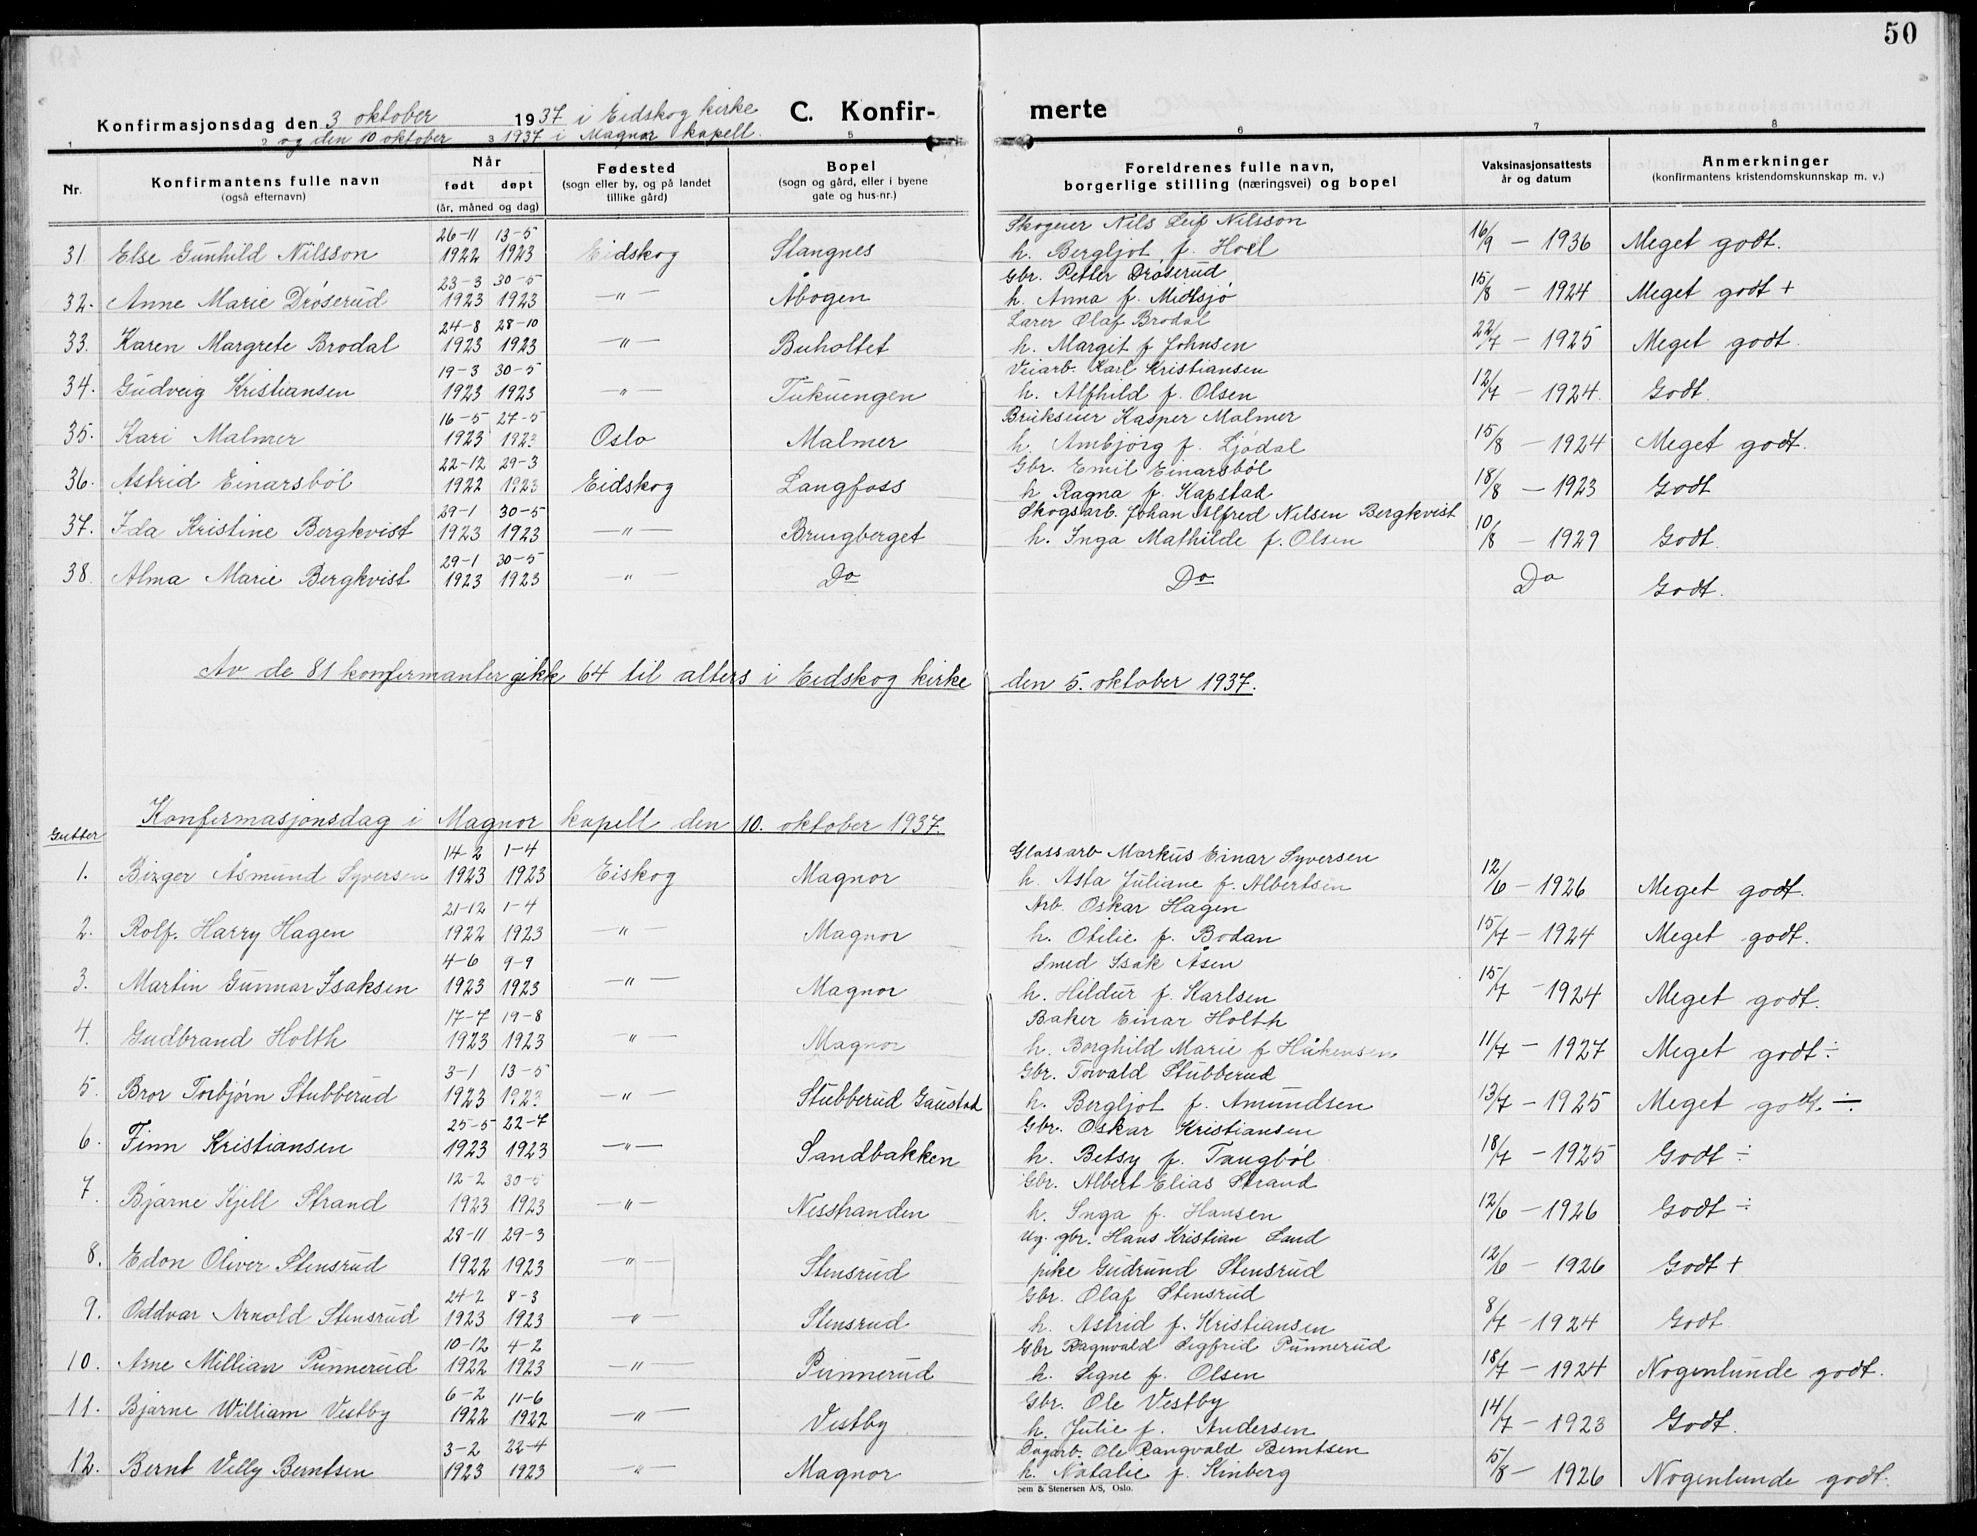 50
Konfirmasjonsdag den 3 oktober 1937 i Eidskog kirke
og den 10 oktober 1937 i Magnor kapell.
C. Konfir- merte
1 2 3 5 6 7 8
Nr. Konfirmantens fulle navn (også efternavn) Når født døpt (år, måned og dag) Fødested (sogn eller by, og på landet tillike gård) Bopel (sogn og gård, eller i byene gate og hus-nr.) Foreldrenes fulle navn, borgerlige stilling (næringsvei) og bopel Vaksinasjonsattests år og datum Anmerkninger (konfirmantens kristendomskunnskap m. v.)
26-11 13-5 Skogeier Nils Leif Nilsson
31. Else Gunhild Nilsson 1922 1923 Eidskog Slangnes h. Bergljot f. Hoel 16/9 - 1936 Meget godt.
23-3 30-5 Gbr. Petter Drøserud
32. Anne Marie Drøserud 1923 1923 -"- Åbogen h. Anna f. Midtsjø 15/8 - 1924 Meget godt +
24-8 28-10 Lærer Olaf Brodal
33. Karen Margrete Brodal 1923 1923 -"- Buholtet h. Margit f. Johnsen 22/7 - 1925 Meget godt.
19-3 30-5 Veiarb. Karl Kristiansen
34. Gudveig Kristiansen 1923 1923 -"- Tukuengen h. Alfhild f. Olsen 12/7 - 1924. Godt.
16-5 27-5 Brukseier Kasper Malmer
35. Kari Malmer 1923 1923 Oslo Malmer h. Ambjørg f. Ljødal 15/8 - 1924 Meget godt.
22-12 29-3 Gbr. Emil Einarsbøl
36. Astrid Einarsbøl 1922 1923 Eidskog Langfoss h. Ragna f. Kapstad 18/8 - 1923 Godt
29-1 30-5 Skogsarb. Johan Alfred Nilsen Bergkvist
37. Ida Kristine Bergkvist 1923 1923 -"- Brungberget h. Inga Mathilde f. Olsen 10/8 - 1929 Godt.
29-1 30-5
38. Alma Marie Bergkvist 1923 1923 -"- Do Do Do Godt.
Av de 81 konfirmanter gikk 64 til alters i Eidskog kirke den 5. oktober 1937.
Konfirmasjonsdag i Magnor kapell den 10. oktober 1937.
Gutter
14-2 1-4 Glassarb Markus Einar Syversen
1. Birger Åsmund Syversen 1923 1923 Eiskog Magnor h. Asta Juliane f. Albertsen 12/6 - 1926 Meget godt.
21-12 1-4 Arb. Oskar Hagen
2. Rolf Harry Hagen 1922 1923 -"- Magnor h. Otilie f. Bodan 15/7 - 1924 Meget godt.
4-6 9-9 Smed Isak Åsen
3. Martin Gunnar Isaksen 1923 1923 -"- Magnor h. Hildur f. Karlsen 15/7 - 1924 Meget godt.
17-7 19-8 Baker Einar Holth
4. Gudbrand Holth 1923 1923 -"- Magnor h. Borghild Marie f Håkensen 11/7 - 1927 Meget godt ÷
3-1 13-5 Gbr. Torvald Stubberud
5. Bror Torbjørn Stubberud 1923 1923 -"- Stubberud Gaustad h. Bergljot f. Amundsen 13/7 - 1925 Meget godt. ÷
25-5 22-7 Gbr. Oskar Kristiansen
6. Finn Kristiansen 1923 1923 -"- Sandbakken h. Betsy f. Tangbøl 18/7 - 1925 Godt ÷
12-2 30-5 Gbr. Albert Elias Strand
7. Bjarne Kjell Strand 1923 1923 -"- Nesstranden h. Inga f. Hansen 12/6 - 1926 Godt ÷
28-11 29-3 Ug. gbr. Hans Kristian Lund
8. Edon Oliver Stensrud 1922 1923 -"- Stensrud pike Gudrund Stensrud 12/6 - 1926 Godt +
24-2 8-3 Gbr. Olaf Stensrud
9. Oddvar Arnold Stensrud 1923 1923 -"- Stensrud h. Astrid f. Kristiansen 8/7 - 1924 Godt
10-12 4-2 Gbr Ragnvald Sigfrid Punnerud
10. Arne Millian Punnerud 1922 1923 -"- Punnerud h. Signe f. Olsen 18/7 - 1924 Nogenlunde godt.
6-2 11-6 Gbr. Ole Vestby
11. Bjarne William Vestby 1922 1922 -"- Vestby h. Julie f. Andersen 14/7 - 1923 Godt.
3-2 22-4 Ole Rangvald Berntsen
12. Bernt Villy Berntsen 1923 1923 -"- Magnor h. Natalie f. Kinberg 15/8 - 1926 Nogenlunde godt.
Sem & Stenersen A/S, Oslo.